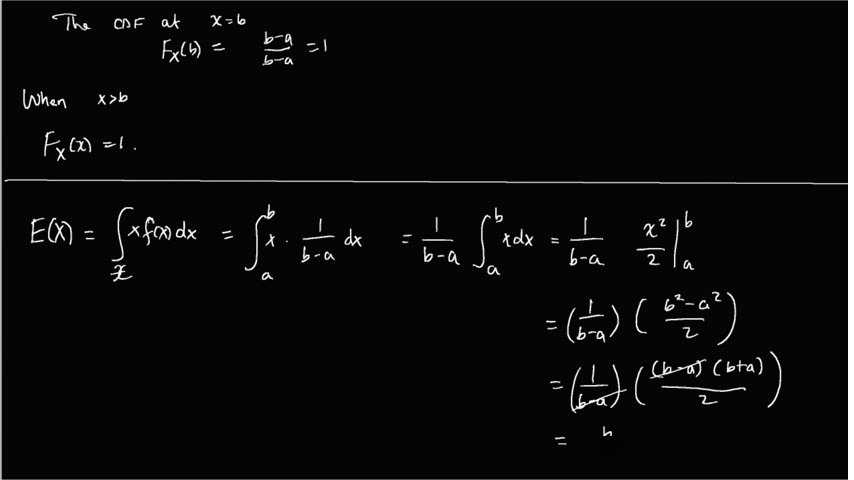 The CDF at x=b
F_X(b) = \frac{b-a}{b-a} = 1
When x>b
F_X(x) = 1.
E(X) = \int_{\mathcal{X}} x f(x) dx = \int_a^b x \cdot \frac{1}{b-a} dx = \frac{1}{b-a} \int_a^b x dx = \frac{1}{b-a} \frac{x^2}{2} |_a^b
= (\frac{1}{b-a}) (\frac{b^2-a^2}{2})
= (\frac{1}{b-a}) (\frac{(b-a)(b+a)}{2})
=